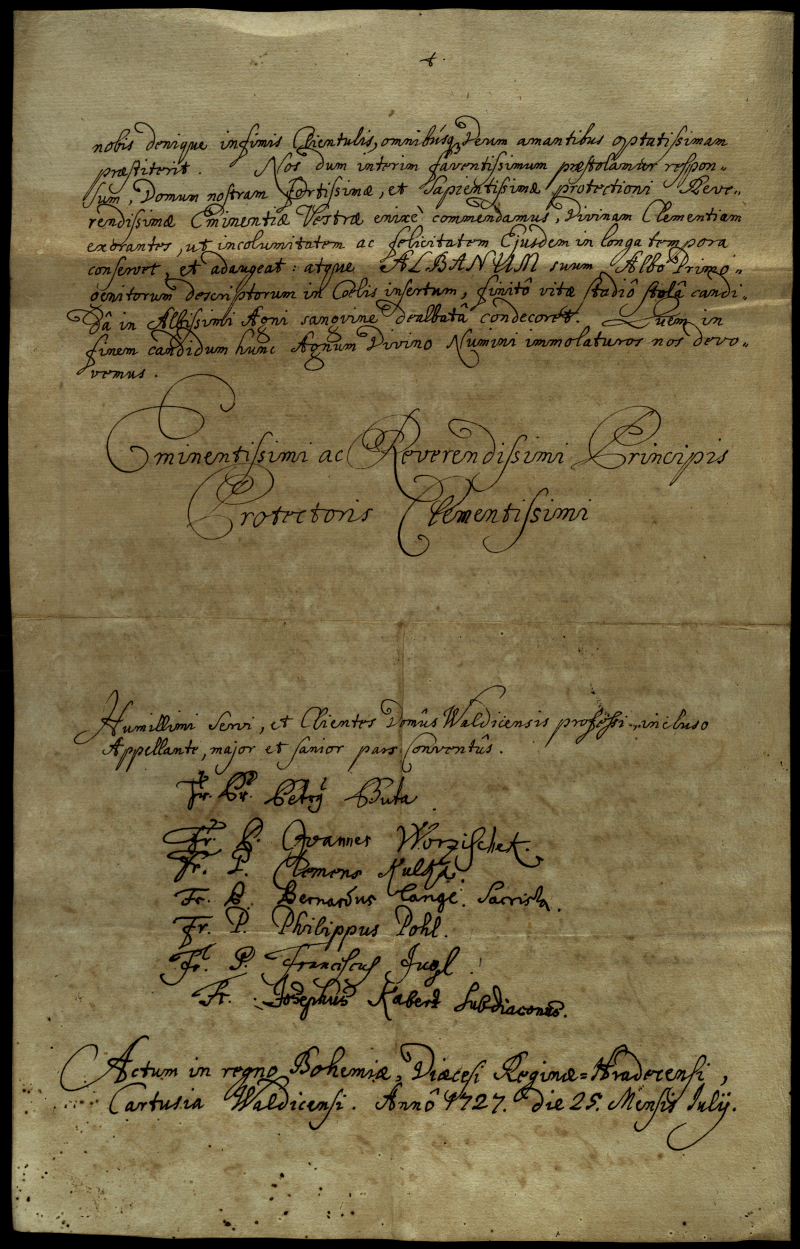 nobis denique infimis Clientulis, omnibúsq; Deum amantibus optatissimam
præstiterit. Nos dum interim faventissimum præstolamur respon-
sum, Domum nostram fortissimæ, et sapientissimæ protectioni Reve-
rendissimæ Eminentiæ Vestræ enixè commendamus, Divinam Clementiam
exorantes, ut incolumitatem ac felicitatem Ejusdem in longa tempora
conservet, et adaugeat: atque ALBANUM suum Albo Primo-
genitorum descriptorum in Cœlis insertum, finitô vitæ stadiô stolâ candi-
dâ in Altissimi Agni sangvine dealbatâ condecoret. Quem in
finem candidum hunc Agnum Divino Numini immolaturos nos devo-
vemus.
Eminentissimi ac Reverendissimi Principis
Protectoris Clementissimi
Humillimi Servi, et Clientes Domûs Waldicensis professi, incluso
Appellante, major et sanior pars Conventûs.
Fr. Pr. Petrq Buta
Fr. P. Joannes Worzischek.
Fr. P. Clemens Kulka.
Fr. P. Bernardus Lange. Sacrista.
Fr. P. Philippus Pohl.
Fr. P. Franciscus Jugl.
Fr. Josephus Kabert Subdiaconus.
Actum in regno Bohemiæ, Diæcesi Reginæ=Hradecensi,
Cartusia Waldicensi. Annô 1727. die 25. Mensis Julij.